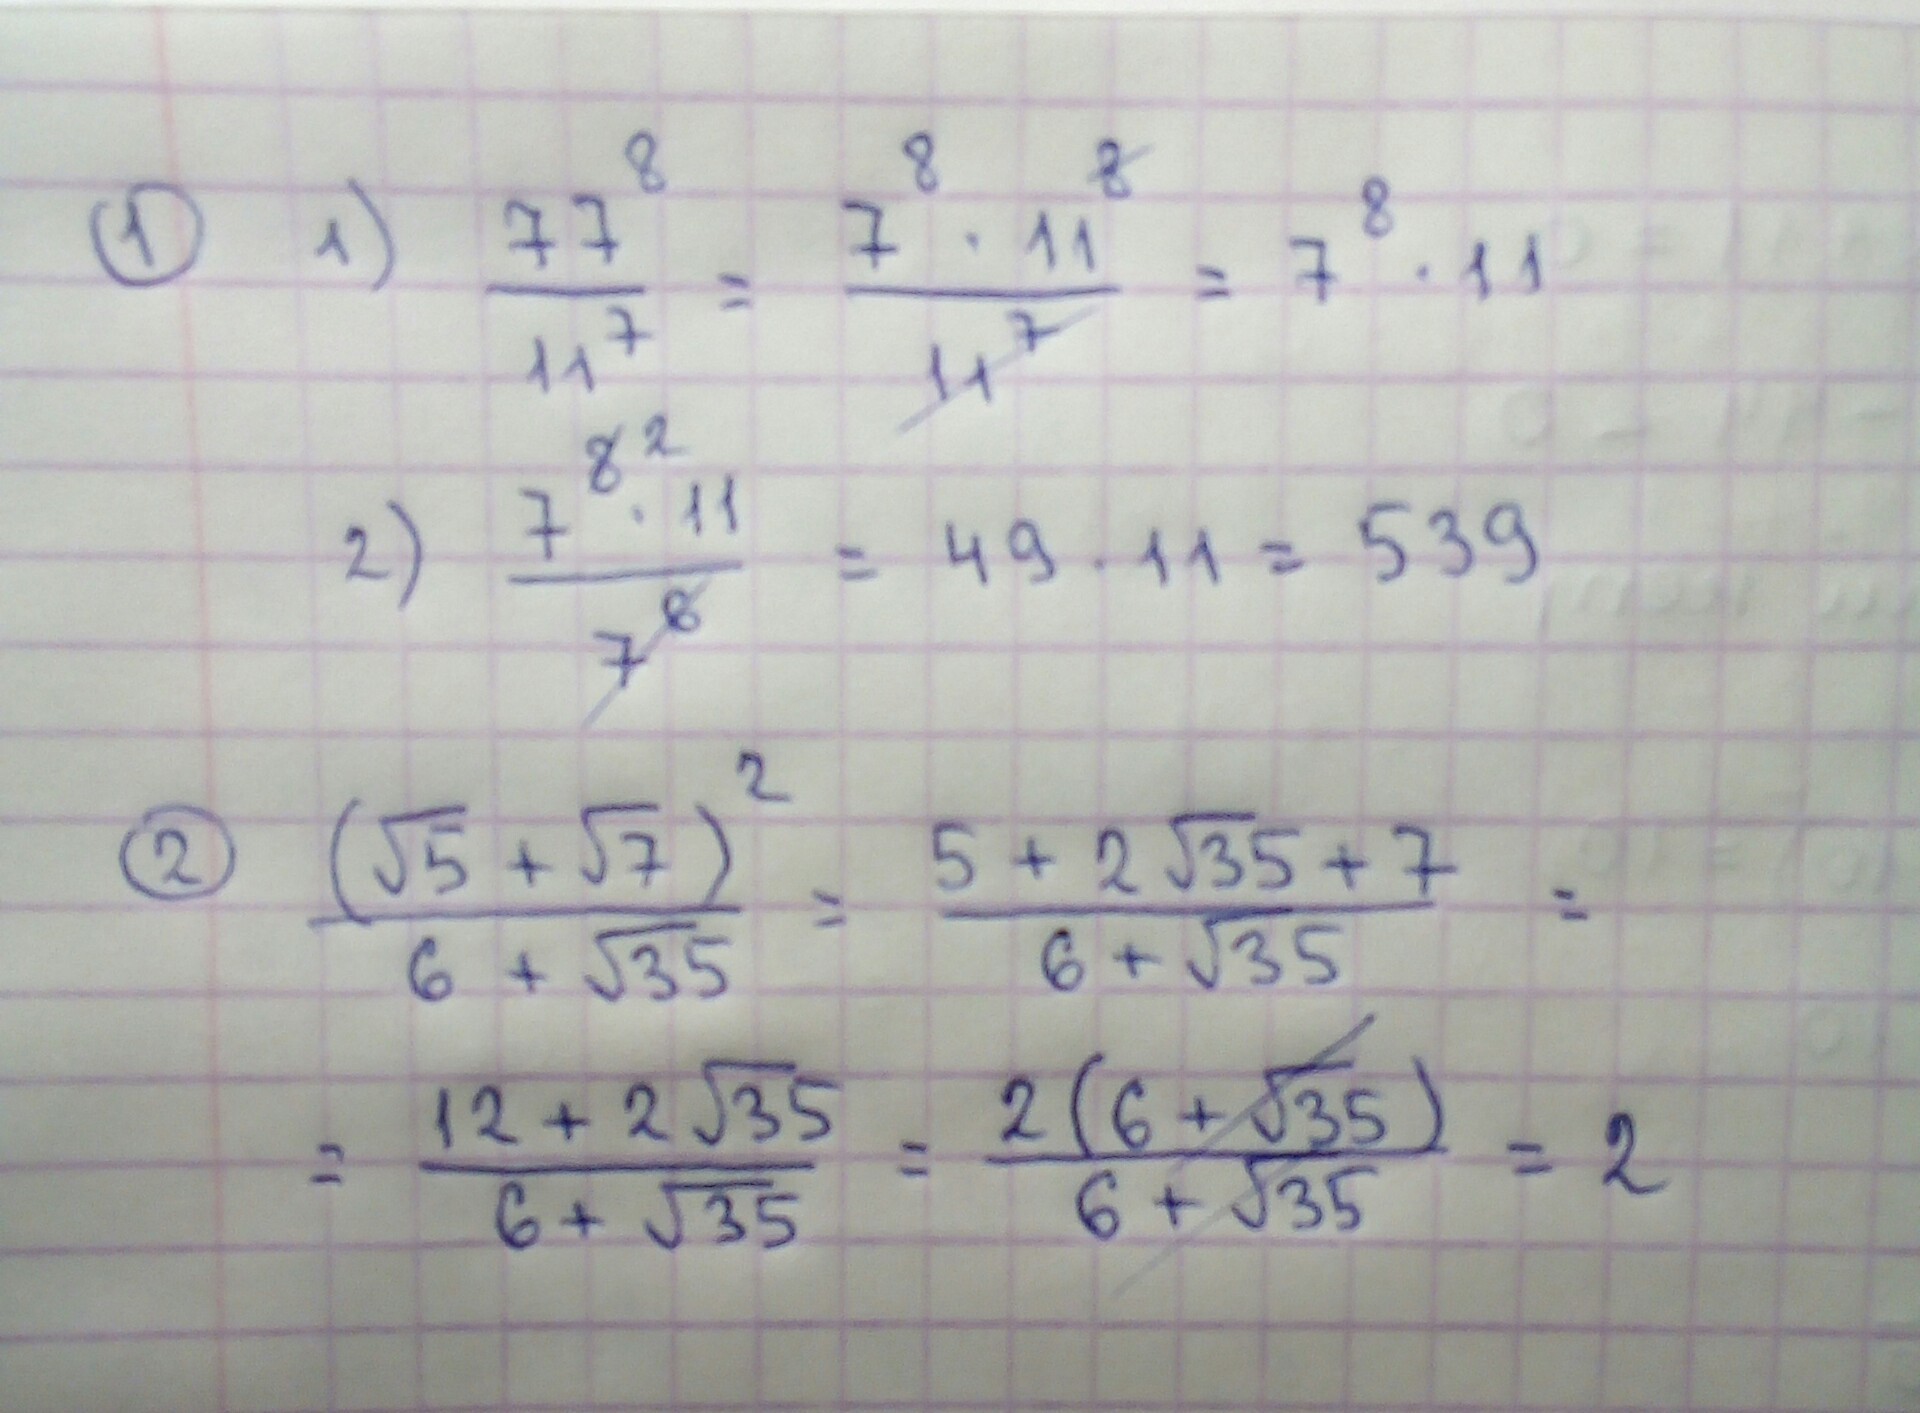 ① 1) 77^8 / 11^7 = 7^8 · 11^8 / 11^7 = 7^8 · 11
2) 7^8 2 · 11 / 7^8 = 49 · 11 = 539
② (√5 + √7)^2 / (6 + √35) = (5 + 2√35 + 7) / (6 + √35) =
= (12 + 2√35) / (6 + √35) = 2(6 + √35) / (6 + √35) = 2